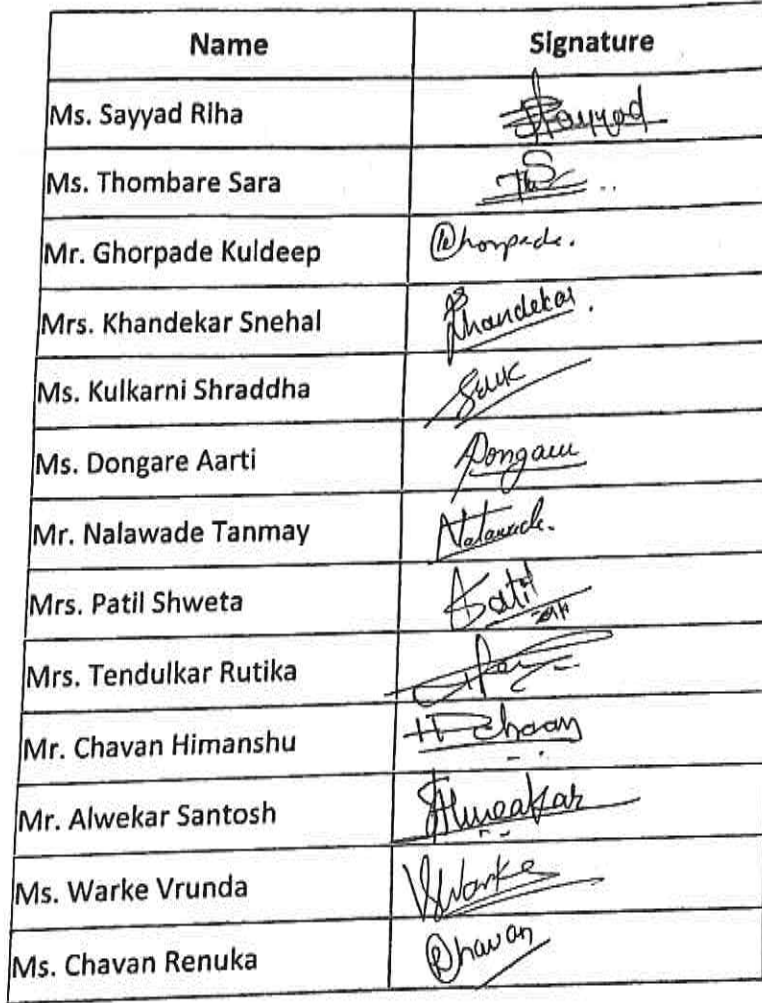 Name Signature
Ms. Sayyad Riha Sayyad
Ms. Thombare Sara
Mr. Ghorpade Kuldeep Ghorpade.
Mrs. Khandekar Snehal Khandekar.
Ms. Kulkarni Shraddha
Ms. Dongare Aarti
Mr. Nalawade Tanmay Nalawade.
Mrs. Patil Shweta Patil
Mrs. Tendulkar Rutika
Mr. Chavan Himanshu
Mr. Alwekar Santosh
Ms. Warke Vrunda VWarke
Ms. Chavan Renuka Chavan